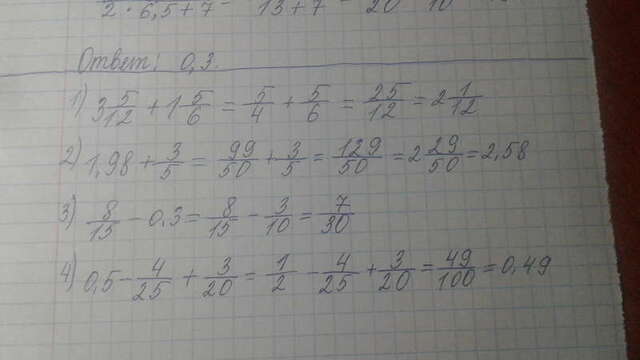 2 · 6,5 + 7 13 + 7 20 10
Ответ: 0,3.
1) 3 5/12 + 1 5/6 = 5/4 + 5/6 = 25/12 = 2 1/12
2) 1,98 + 3/5 = 99/50 + 3/5 = 129/50 = 2 29/50 = 2,58
3) 8/15 - 0,3 = 8/15 - 3/10 = 7/30
4) 0,5 - 4/25 + 3/20 = 1/2 - 4/25 + 3/20 = 49/100 = 0,49